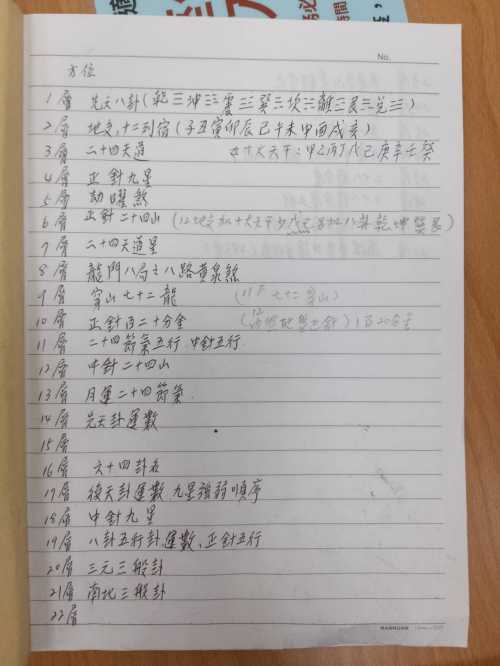 No.
方位
1層 先天八卦(乾☰坤☷震☳巽☴坎☵離☲艮☶兌☱)
2層 地支,十二列宿(子丑寅卯辰巳午未申酉戌亥)
3層 二十四天道 十天干:甲乙丙丁戊己庚辛壬癸
4層 正針九星
5層 劫曜煞
6層 正針二十四山 (12地支加十天干少戊己 八卦乾坤巽艮)
7層 二十四天道星
8層 龍門八局之八路黃泉煞
9層 穿山七十二龍 (七十二穿山)
10層 正針百二十分金 (120分金
11層 二十四節氣五行 中針五行
12層 中針二十四山
13層 月運二十四節氣
14層 先天卦運數
15層
16層 六十四卦名
17層 後天卦運數 九星強弱順序
18層 中針九星
19層 八卦五行卦運數、正針五行
20層 三元三般卦
21層 南北三般卦
22層